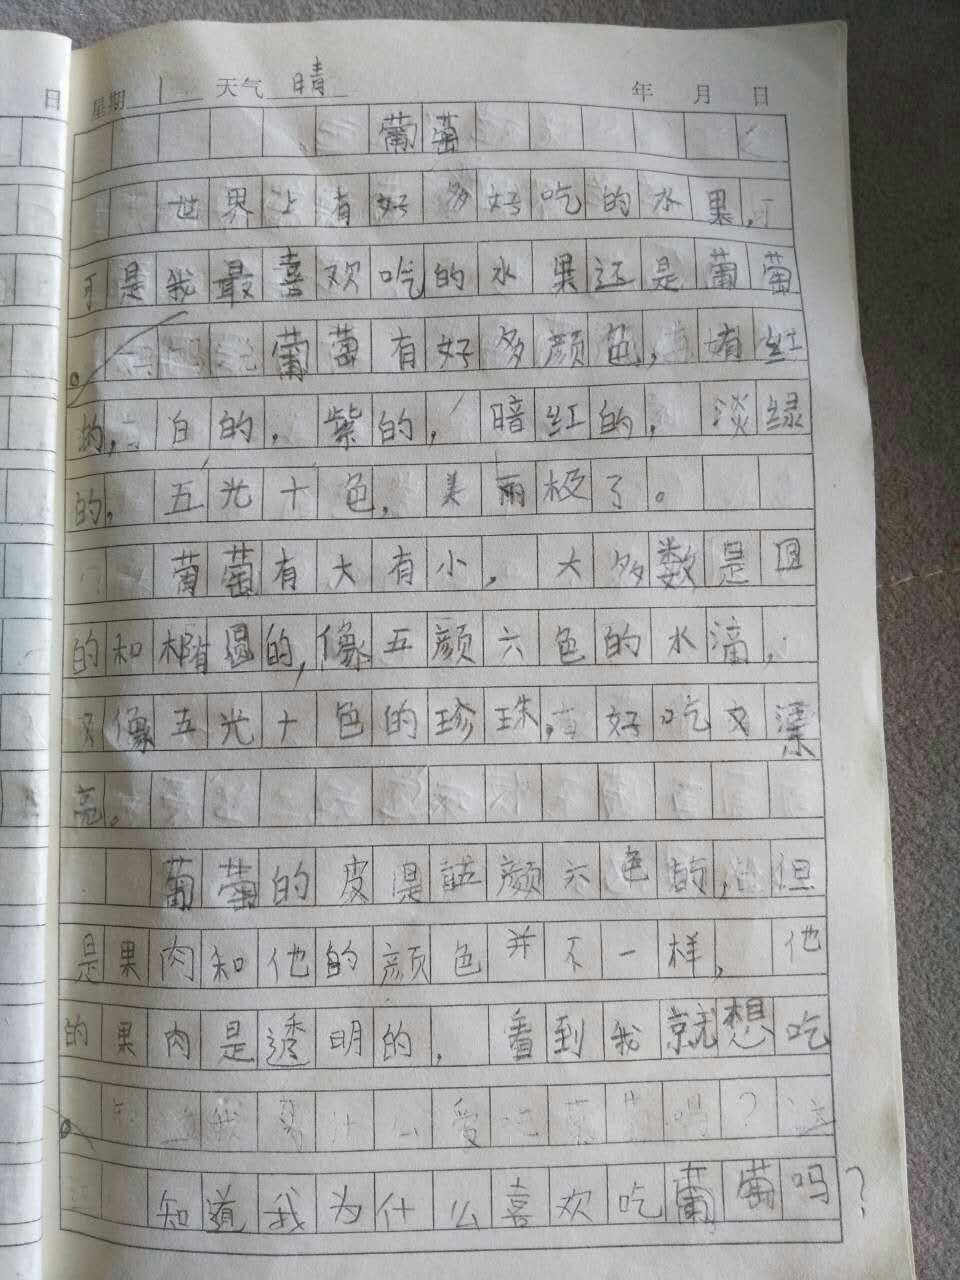 日 星期 1 天气 晴 年 月 日
葡萄
世界上有好多好吃的水果，
可是我最喜欢吃的水果还是葡萄
。葡萄有好多颜色，有红
的，白的，紫的，暗红的，淡绿
的，五光十色，美丽极了。
葡萄有大有小，大多数是
的和椭圆的，像五颜六色的水滴，
又像五光十色的珍珠，好吃又漂
亮。
葡萄的皮是五颜六色的，但
是果肉和他的颜色并不一样，他
的果肉是透明的，看到我就想吃
。
知道我为什么喜欢吃葡萄吗？